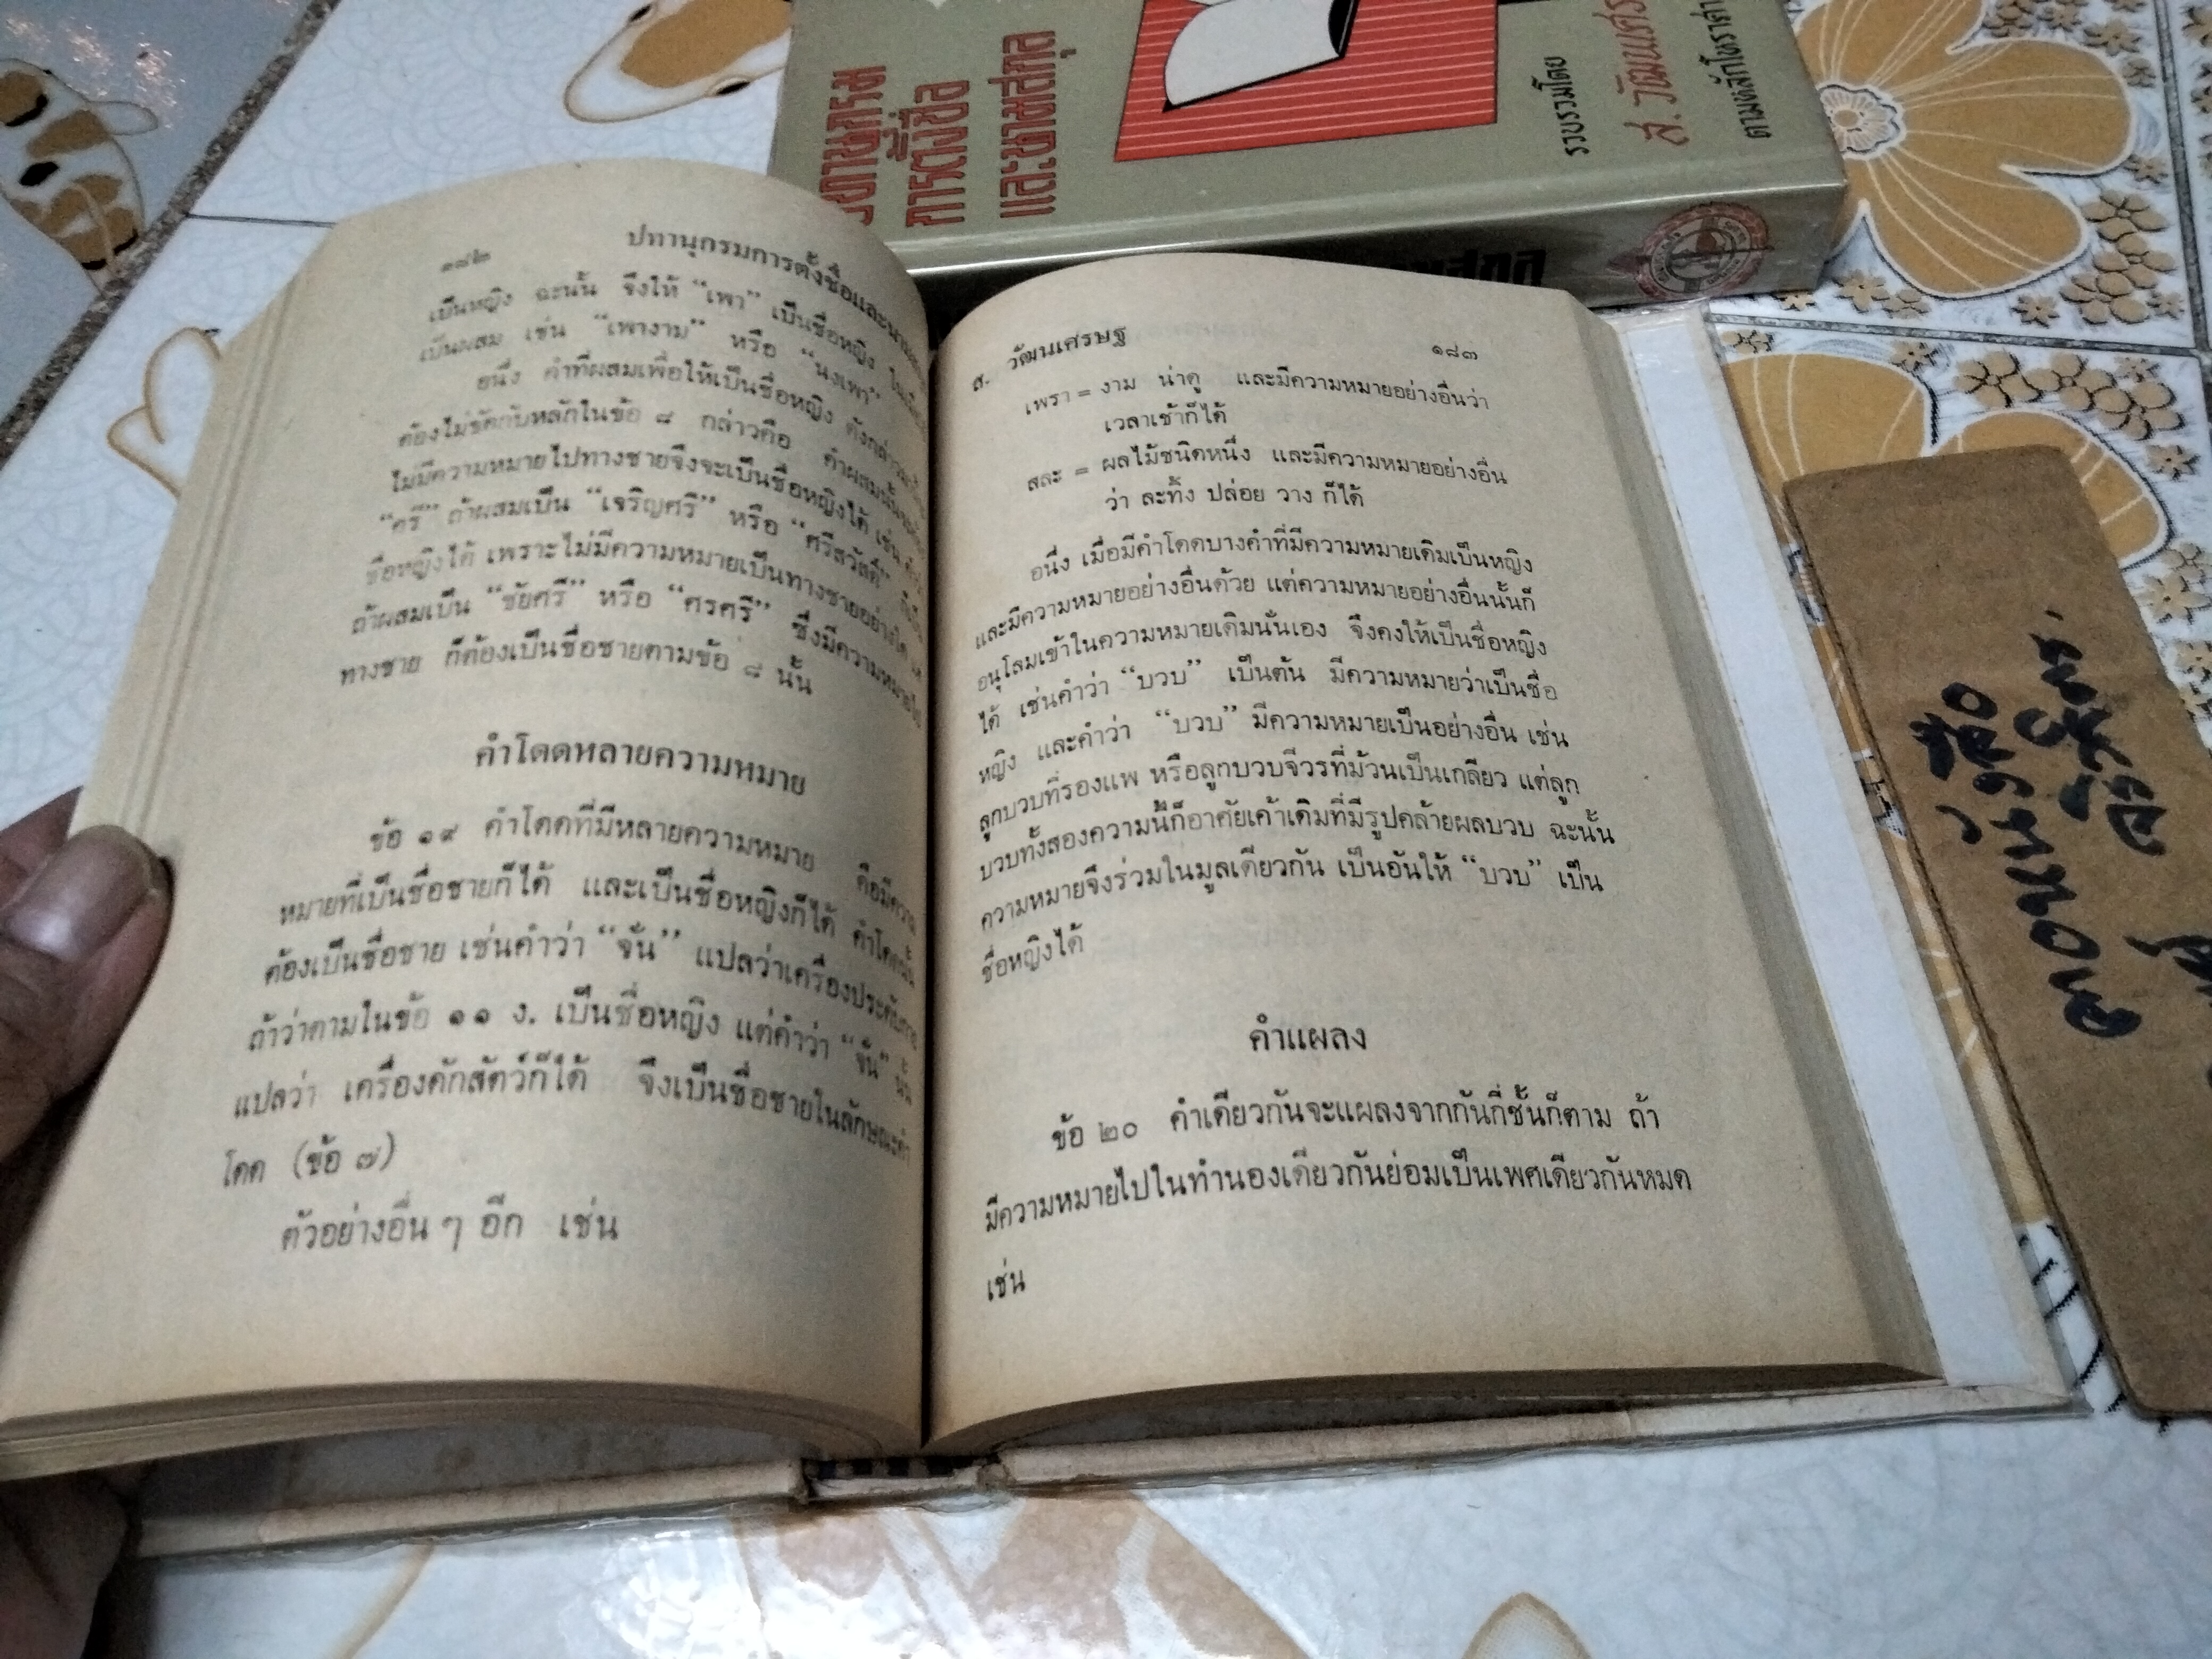 การตั้งชื่อ
และนามสกุล
รวบรวมโดย
ส. วัฒนเศรษ
ตามหลักโหราศา
๑๘๒ ปทานุกรมการตั้งชื่อและนาม
เป็นหญิง ฉะนั้น จึงให้ “เพา” เป็นชื่อหญิง
เป็นผสม เช่น “เพางาม” หรือ “นงเพา”
อนึ่ง คำที่ผสมเพื่อให้เป็นชื่อหญิง ดังกล่าว
ต้องไม่ขัดกับหลักในข้อ ๘ กล่าวคือ คำผสมนั้น
ไม่มีความหมายไปทางชายจึงจะเป็นชื่อหญิงได้ เช่น
“ศรี” ถ้าผสมเป็น “เจริญศรี” หรือ “ศรีสวัสดิ์”
ชื่อหญิงได้ เพราะไม่มีความหมายเป็นทางชายอย่างใด แต่
ถ้าผสมเป็น “ชัยศรี” หรือ “ศรศรี” ซึ่งมีความหมายไป
ทางชาย ก็ต้องเป็นชื่อชายตามข้อ ๘ นั้น
คำโดดหลายความหมาย
ข้อ ๑๙ คำโดดที่มีหลายความหมาย คือมีความ
หมายที่เป็นชื่อชายก็ได้ และเป็นชื่อหญิงก็ได้ คำโดดนั้น
ต้องเป็นชื่อชาย เช่นคำว่า “จั่น” แปลว่าเครื่องประดับกาย
ถ้าว่าตามในข้อ ๑๑ ง. เป็นชื่อหญิง แต่คำว่า “จั่น” นั้น
แปลว่า เครื่องดักสัตว์ก็ได้ จึงเป็นชื่อชายในลักษณะคำ
โดด (ข้อ ๗)
ตัวอย่างอื่น ๆ อีก เช่น
ส. วัฒนเศรษฐ ๑๘๓
เพรา = งาม น่าดู และมีความหมายอย่างอื่นว่า
เวลาเช้าก็ได้
สละ = ผลไม้ชนิดหนึ่ง และมีความหมายอย่างอื่น
ว่า ละทิ้ง ปล่อย วาง ก็ได้
อนึ่ง เมื่อมีคำโดดบางคำที่มีความหมายเดิมเป็นหญิง
และมีความหมายอย่างอื่นด้วย แต่ความหมายอย่างอื่นนั้นก็
อนุโลมเข้าในความหมายเดิมนั่นเอง จึงคงให้เป็นชื่อหญิง
ได้ เช่นคำว่า “บวบ” เป็นต้น มีความหมายว่าเป็นชื่อ
หญิง และคำว่า “บวบ” มีความหมายเป็นอย่างอื่น เช่น
ลูกบวบที่รองแพ หรือลูกบวบจีวรที่ม้วนเป็นเกลียว แต่ลูก
บวบทั้งสองความนี้ก็อาศัยเค้าเดิมที่มีรูปคล้ายผลบวบ ฉะนั้น
ความหมายจึงร่วมในมูลเดียวกัน เป็นอันให้ “บวบ” เป็น
ชื่อหญิงได้
คำแผลง
ข้อ ๒๐ คำเดียวกันจะแผลงจากกันกี่ชั้นก็ตาม ถ้า
มีความหมายไปในทำนองเดียวกันย่อมเป็นเพศเดียวกันหมด
เช่น